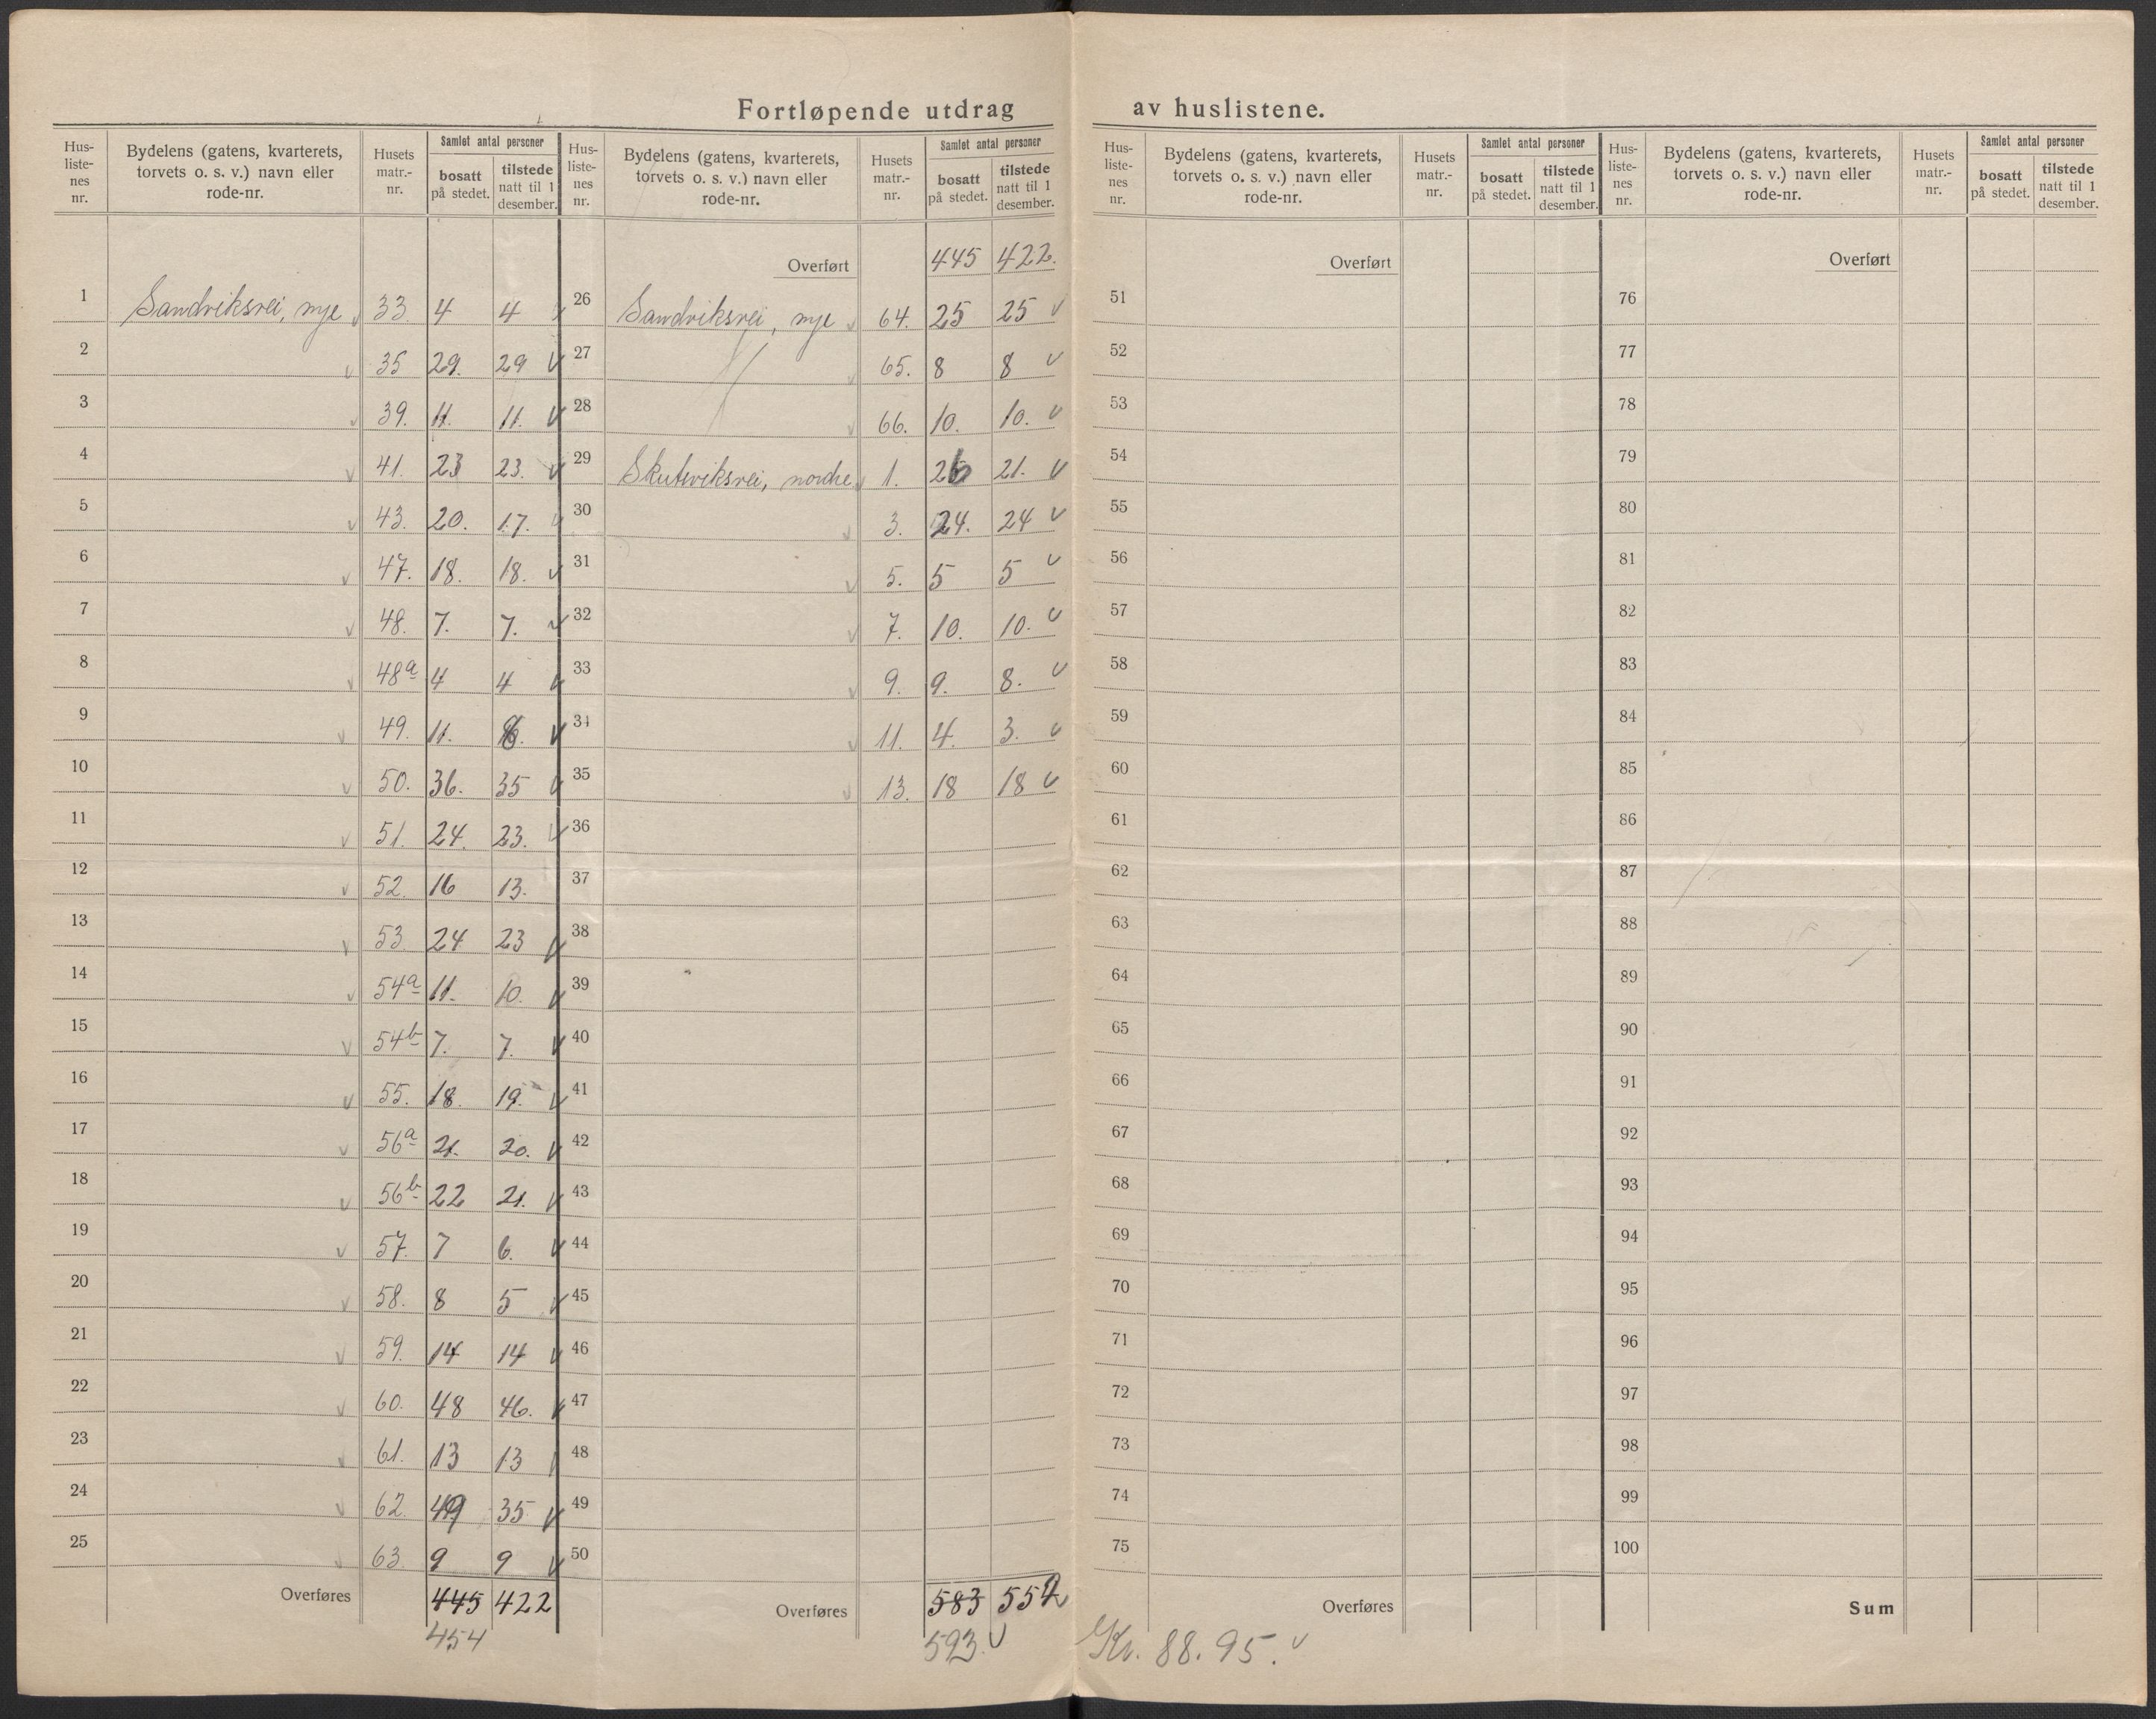 Fortløpende utdrag av huslistene.
Hus-listenes nr. Bydelens (gatens, kvarterets, torvets o. s. v.) navn eller rode-nr. Husets matr.-nr. Samlet antal personer bosatt på stedet. tilstede natt til 1 desember.
1 Sandviksvei, nye 33. 4 4
2 35 29. 29
3 39. 11. 11.
4 41. 23 23.
5 43. 20. 17.
6 47. 18. 18.
7 48. 7. 7.
8 48a 4 4
9 49. 11.
10 50. 36. 35
11 51. 24. 23.
12 52. 16 13.
13 53. 24 23
14 54a 11. 10.
15 54b 7. 7.
16 55. 18. 19.
17 56a 21. 20.
18 56b 22 21.
19 57. 7 6.
20 58. 8 5
21 59. 14 14
22 60. 48 46.
23 61. 13 13
24 62. 49 35
25 63. 9 9
Overføres 445 422
454
Hus-listenes nr. Bydelens (gatens, kvarterets, torvets o. s. v.) navn eller rode-nr. Husets matr.-nr. Samlet antal personer bosatt på stedet. tilstede natt til 1 desember.
Overført 445 422.
26 Sandviksvei, nye 64. 25 25
27 65. 8 8
28 66. 10. 10.
29 Skuteviksvei, nordre 1. 26 21.
30 3. 24. 24
31 5. 5 5
32 7. 10. 10.
33 9. 9. 8.
34 11. 4. 3.
35 13. 18 18
36
37
38
39
40
41
42
43
44
45
46
47
48
49
50
Overføres 583 554
593.
Hus-listenes nr. Bydelens (gatens, kvarterets, torvets o. s. v.) navn eller rode-nr. Husets matr.-nr. Samlet antal personer bosatt på stedet. tilstede natt til 1 desember.
Overført
51
52
53
54
55
56
57
58
59
60
61
62
63
64
65
66
67
68
69
70
71
72
73
74
75
Overføres
Kr. 88.95.
Hus-listenes nr. Bydelens (gatens, kvarterets, torvets o. s. v.) navn eller rode-nr. Husets matr.-nr. Samlet antal personer bosatt på stedet. tilstede natt til 1 desember.
Overført
76
77
78
79
80
81
82
83
84
85
86
87
88
89
90
91
92
93
94
95
96
97
98
99
100
Sum